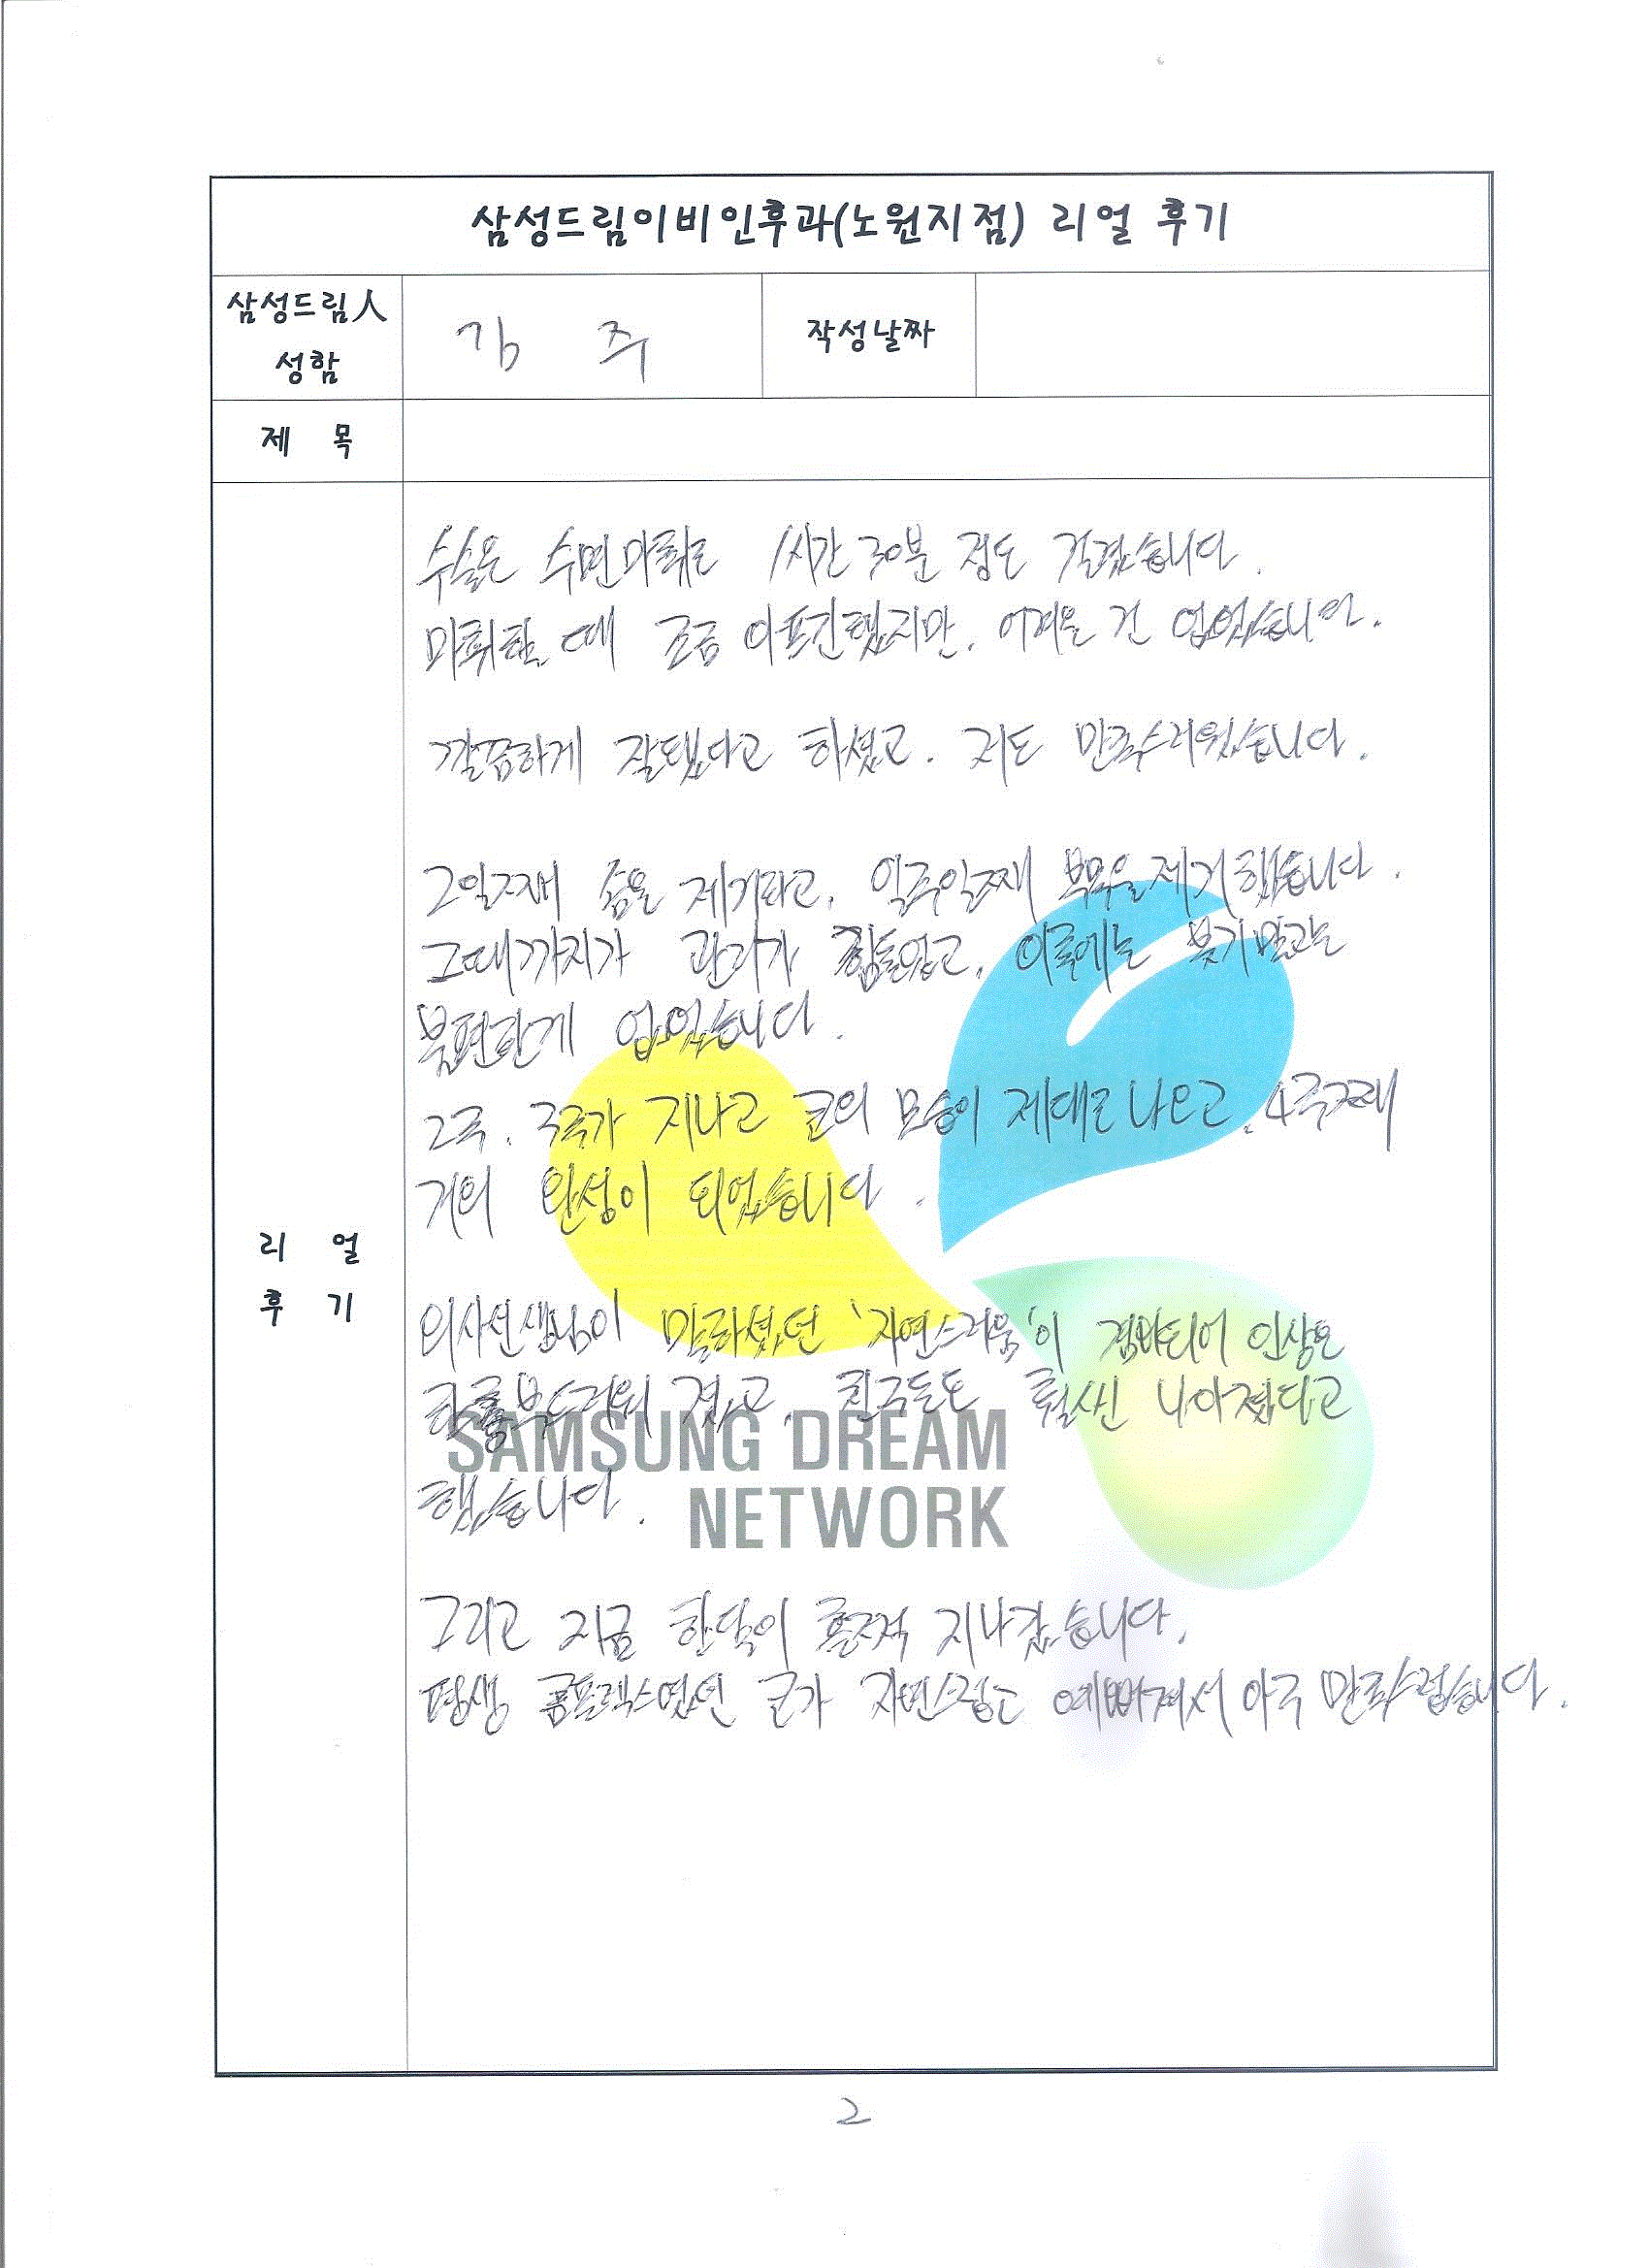 삼성드림이비인후과(노원지점) 리얼 후기
삼성드림人
성함
김 주
작성날짜
제 목
수술은 수면마취로 1시간 30분 정도 걸렸습니다.
마취할 때 조금 아프긴했지만, 어려운 건 없었습니다.
깔끔하게 잘됐다고 하셨고. 저도 만족스러웠습니다.
3일째에 솜을 제거하고, 일주일째 부목을 제거했습니다.
그때까지가 관리가 힘들었고, 이후에는 붓기말고는
불편한게 없었습니다.
2주. 3주가 지나고 코의 모습이 제대로 나오고, 4주째
거의 완성이 되었습니다.
리 얼
후 기
의사선생님이 말하셨던 '자연스러움'이 겸비되어 인상도
부드러워 졌고, 친구들도 훨씬 나아졌다고
했습니다.
SAMSUNG DREAM
NETWORK
그리고 지금 한달이 훌쩍 지나갔습니다.
평생 콤플렉스였던 코가 자연스럽고 예뻐져서 아주 만족스럽습니다.
2